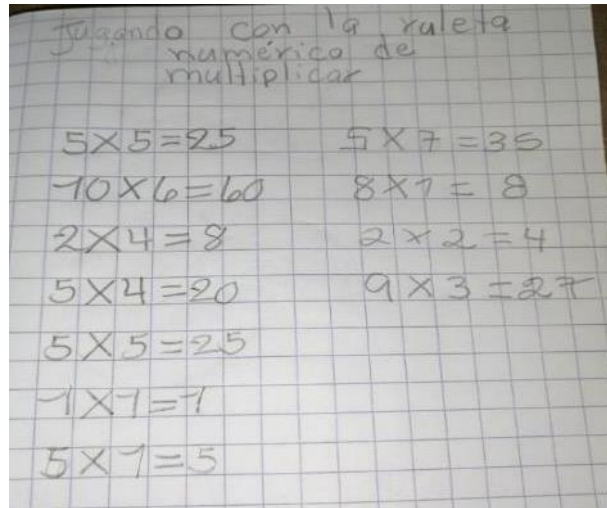 Jugando con la ruleta
numérica de
multiplicar
5×5=25
10×6=60
2×4=8
5×4=20
5×5=25
1×1=1
5×1=5
5×7=35
8×1=8
2×2=4
9×3=27